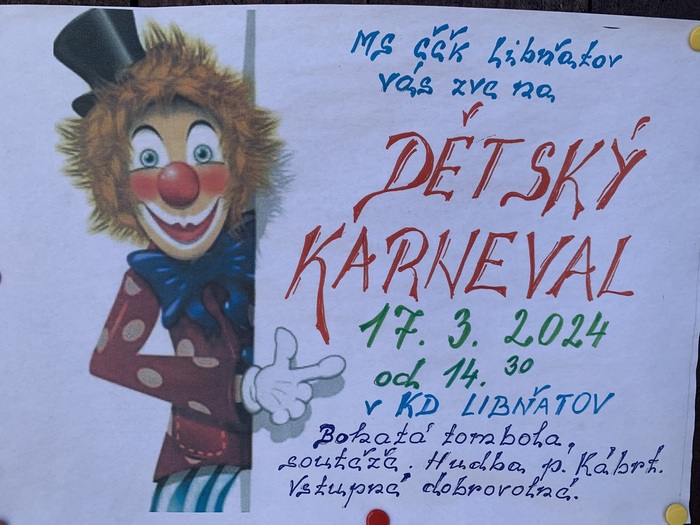 MS ČČK Libňatov
vás zve na
DĚTSKÝ
KARNEVAL
17. 3. 2024
od 14.30
v KD LIBŇATOV
Bohatá tombola,
soutěže. Hudba p. Kábrt.
Vstupné dobrovolné.